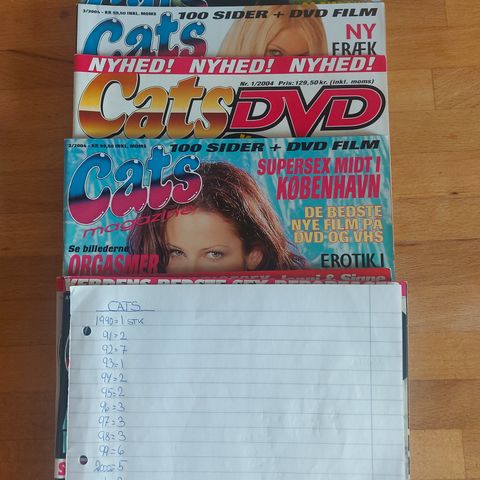 3/2004 - KR 99,50 INKL. MOMS
100 SIDER + DVD FILM
Cats
NY
FRÆK
NYHED! NYHED! NYHED!
Nr. 1/2004 Pris: 129,50 kr. (inkl. moms)
Cats DVD
2/2004 - KR 99,50 INKL. MOMS
100 SIDER + DVD FILM
Cats
magazine
SUPERSEX MIDT I
KØBENHAVN
DE BEDSTE
NYE FILM PÅ
DVD OG VHS
Se billederne
ORGASMER
EROTIK I
CATS
1990=1 STK
91=2
92=7
93=1
94=2
95=2
96=3
97=3
98=3
99=6
2000=5